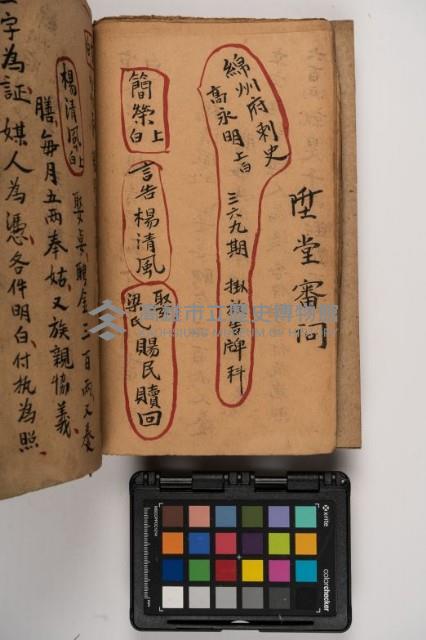 陞堂審问
綿州府刺史
高永明上白
三六九期
掛放告牌科
簡榮上白
言告楊清風
娶梁氏
賜民贖回
楊清風上白
娶妾聘金二百兩又奏
膳每月五两奉姑又族親恊義
字為証媒人為憑各件明白付执為照
高雄市立歷史博物館
x-rite
colorchecker